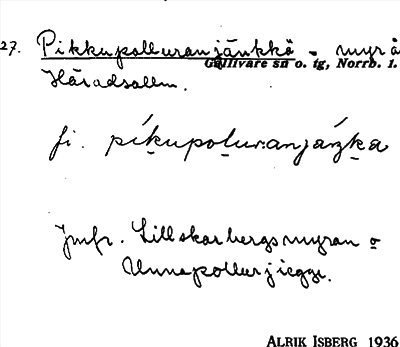 27. Pikkupolluranjänkkä - myr å
Gällivare sn o. tg, Norrb. 1.
Häradsallm.
fi. píkupoluranjáŋka
Jmfr. Lillskarbergsmyran o
Unnapollurjiegge.
ALRIK ISBERG 1936